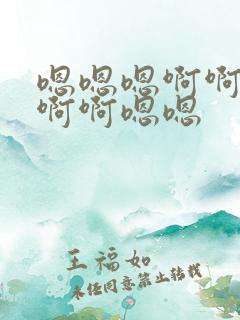 嗯嗯嗯啊啊
啊啊嗯嗯
王福如
未经同意禁止转载